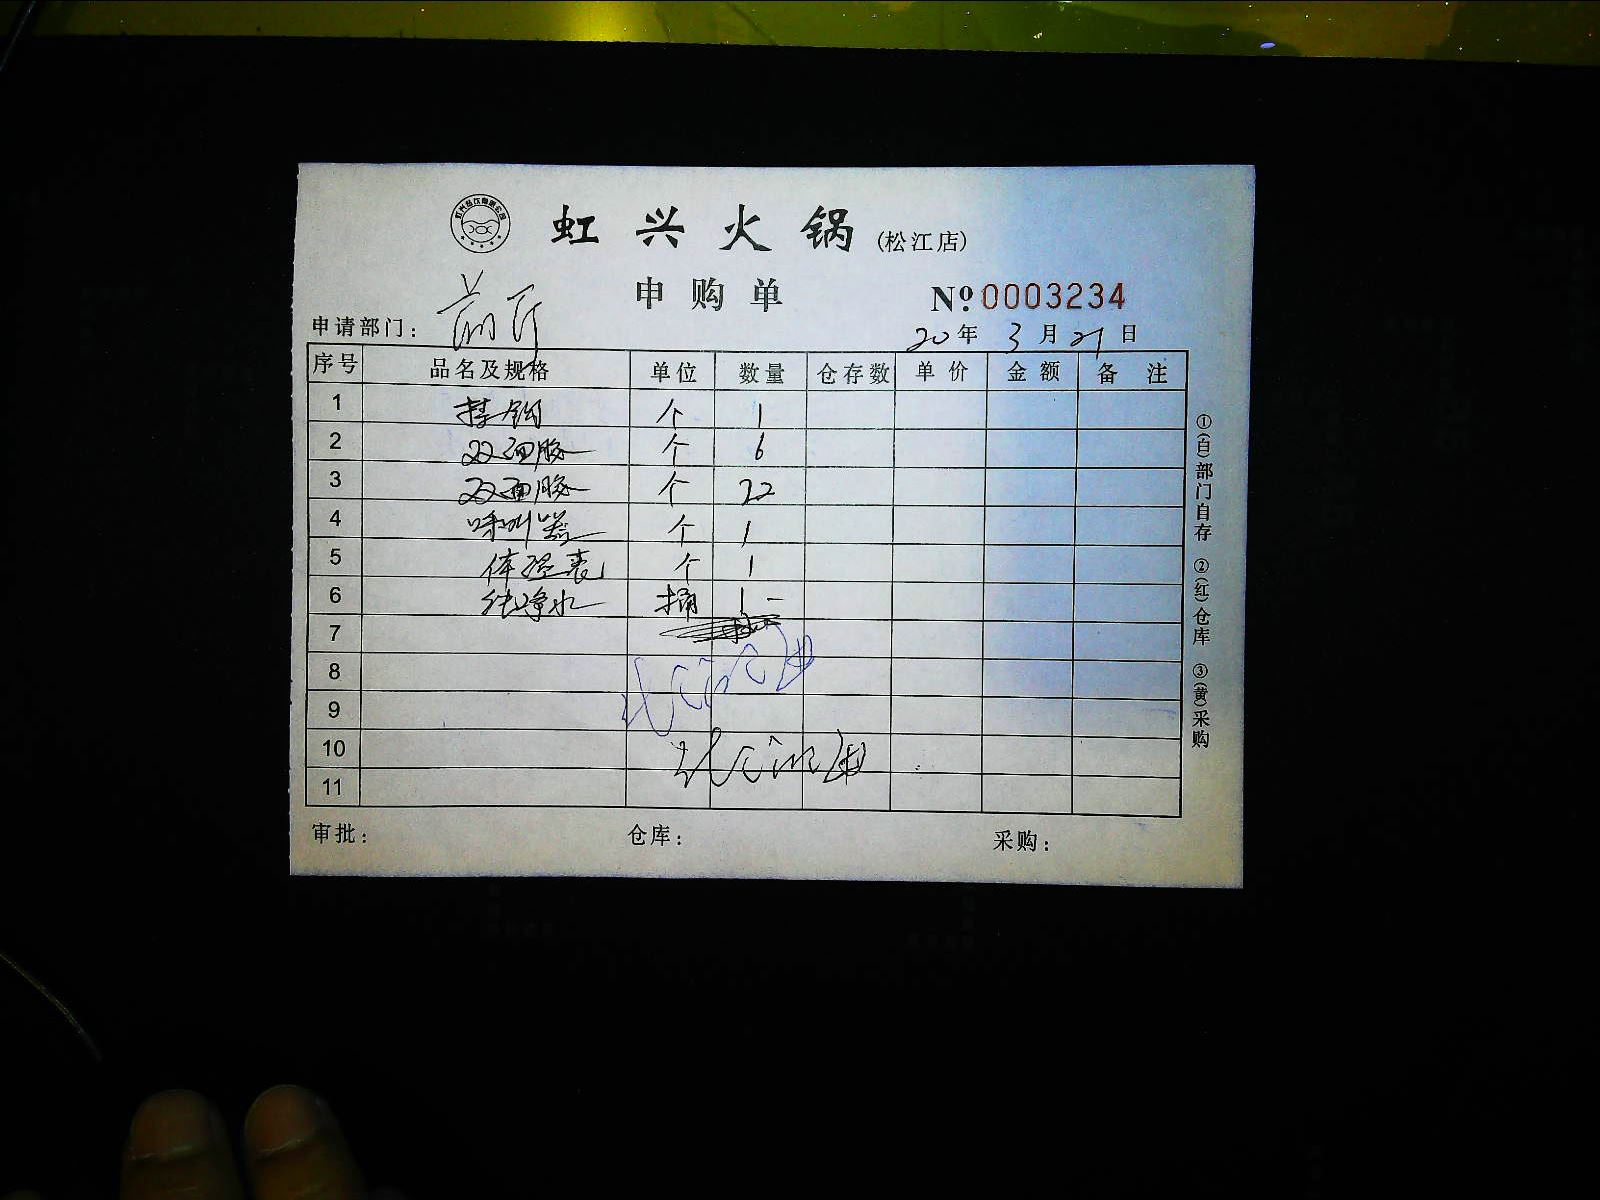 虹兴火锅(松江店)
申购单 №0003234
申请部门: 前厅 20年3月21日
序号 品名及规格 单位 数量 仓存数 单价 金额 备注
1 挂钩 个 1
2 双面胶 个 6
3 双面胶 个 22
4 呼叫器 个 1
5 体温表 个 1
6 纯净水 桶 1
7
8
9
10
11
审批: 仓库: 采购:
①(白)部门自存 ②(红)仓库 ③(黄)采购